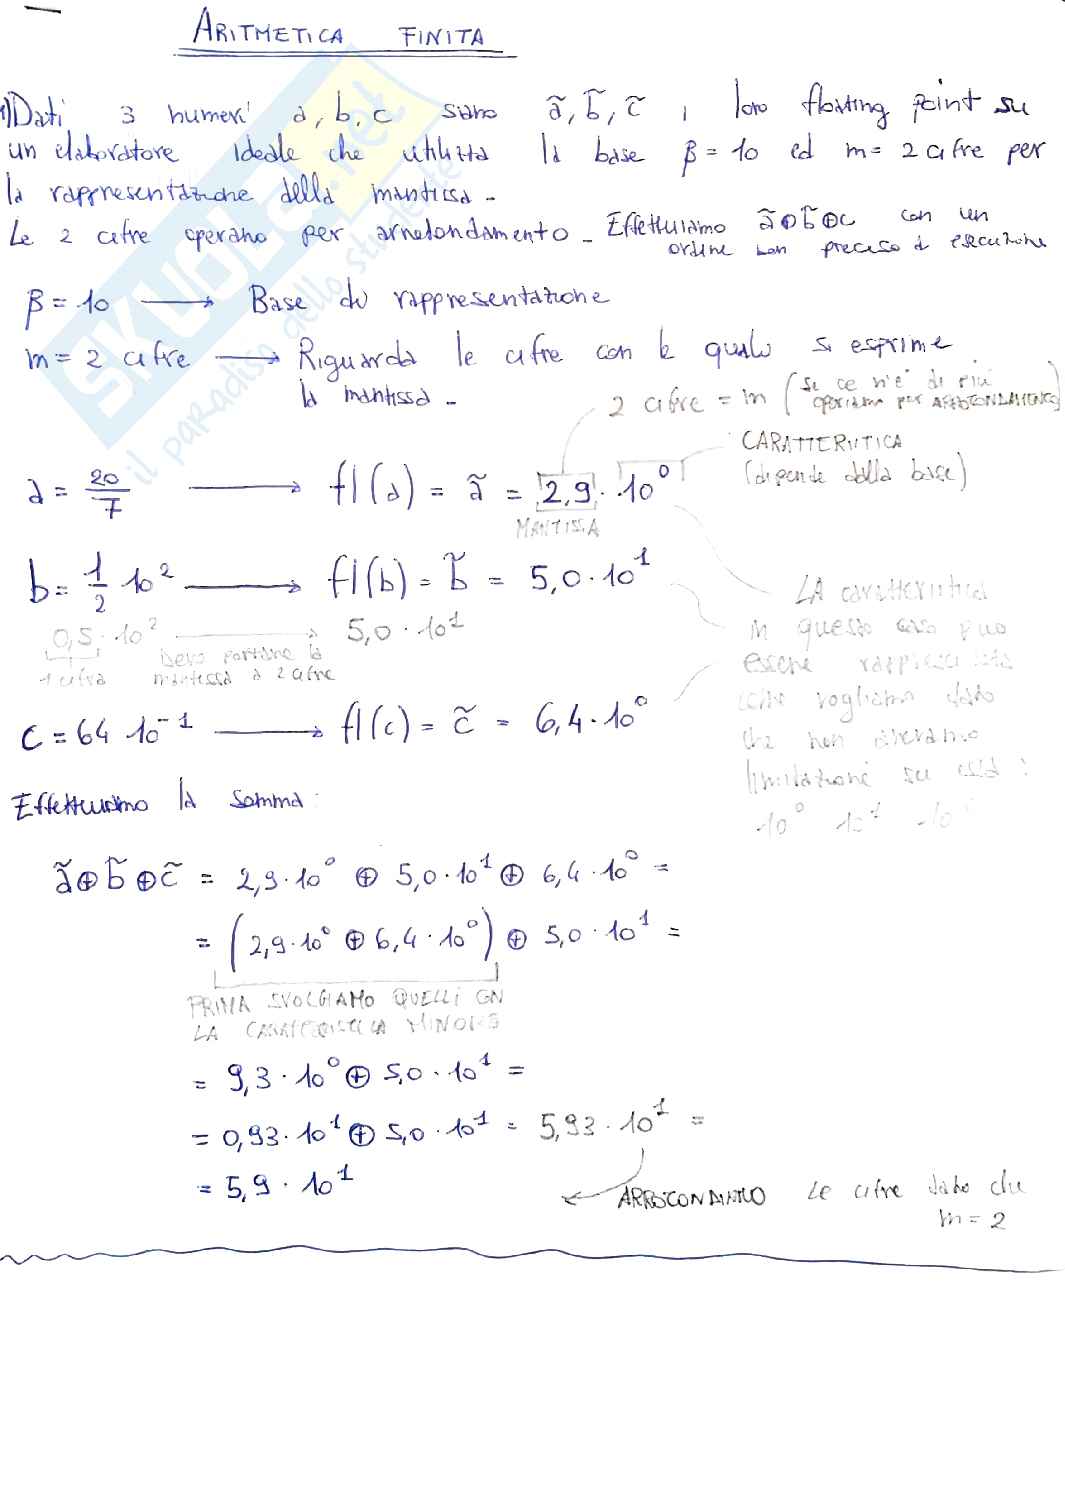 ARITMETICA FINITA
1) Dati 3 numeri a, b, c siano ã, b̃, c̃, i loro floating point su
un elaboratore ideale che utilizza la base β = 10 ed m = 2 cifre per
la rappresentazione della mantissa -
Le 2 cifre operano per arrotondamento - Effettuiamo ã⊕b̃⊕c con un
ordine non preciso di esecuzione
β = 10 → Base di rappresentazione
m = 2 cifre → Riguarda le cifre con le quali si esprime
la mantissa -
2 cifre = m (se ce n'è di più
operiamo per ARROTONDAMENTO)
CARATTERISTICA
(dipende dalla base)
a = 20/7 → fl(a) = ã = 2,9 · 10⁰
MANTISSA
b = 1/2 10² → fl(b) = b̃ = 5,0 · 10¹
0,5 · 10² → 5,0 · 10¹
1 cifra devo portare la
mantissa a 2 cifre
LA caratteristica
in questo caso può
essere rappresentata
come vogliamo dato
che non avevamo
limitazioni su essa :
10⁰ 10¹ 10
c = 64 10⁻¹ → fl(c) = c̃ = 6,4 · 10⁰
Effettuiamo la somma :
ã⊕b̃⊕c̃ = 2,9 · 10⁰ ⊕ 5,0 · 10¹ ⊕ 6,4 · 10⁰ =
= (2,9 · 10⁰ ⊕ 6,4 · 10⁰) ⊕ 5,0 · 10¹ =
PRIMA SVOLGIAMO QUELLI CON
LA CARATTERISTICA MINORE
= 9,3 · 10⁰ ⊕ 5,0 · 10¹ =
= 0,93 · 10¹ ⊕ 5,0 · 10¹ = 5,93 · 10¹ =
= 5,9 · 10¹
ARROTONDANDO le cifre dato che
m = 2
SKUOLA.net
il paradiso dello studente